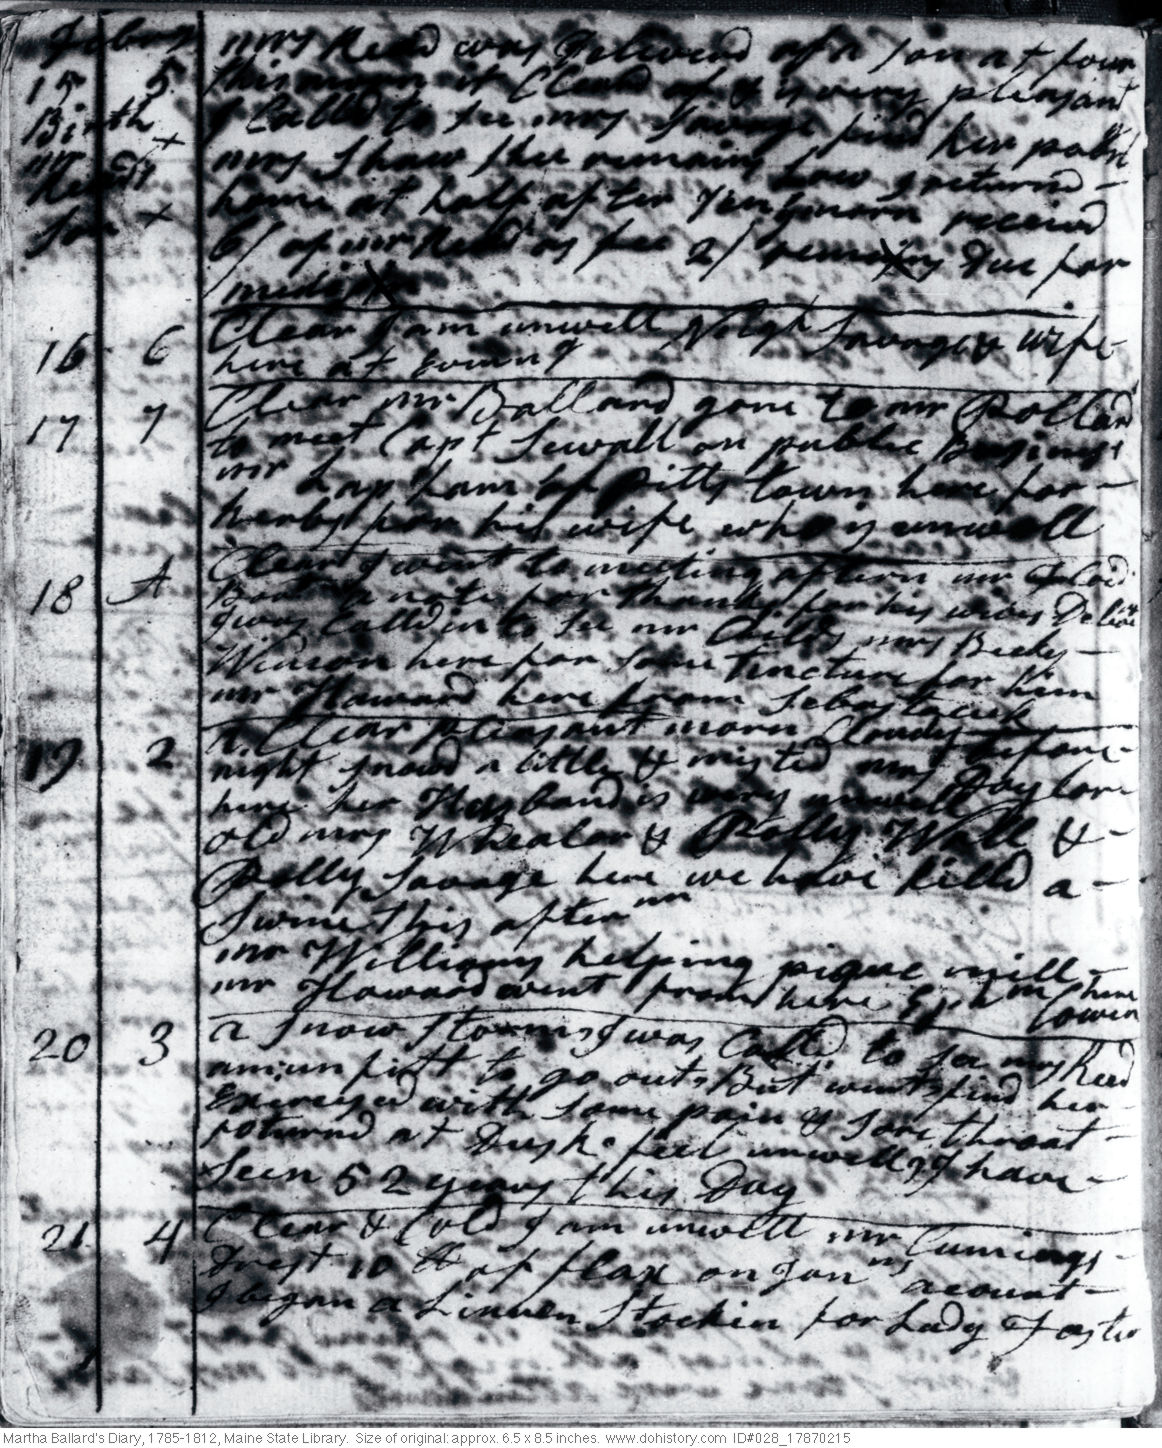 Febry mrs Read was Delivered of a son at four
15 5 this morn it Cleard of & is very pleasant
Birth I Calld to see mrs Savage find her poorly
mr mrs Shaw Shee remains Low I returnd
home at half after Ten morn receivd
Son X 6/ of mr Read as fee 2/ remaing Due for
medisin
16 6 Clear I am unwell Nelgh Savage & wife
here at Evening
17 7 Clear mr Ballard gone to mr Pollard
to meet Capt Sewall on public Business
mr Lap ham of Pitts town here for
herbs for his wife who is unwell
18 A Clear I went to meeting aftern mr Flood
a note for Thanks for his wives Delivr
I was Calld in to see mr Childs mrs Beeky
Winson here for some tincture for him
mr Howard here from Sebasticuck
19 2 Clear pleasant morn Cloudy before
night snowd a little & misted mrs
here her Husband is very unwell Daylor
old mrs Whealer & Polly Wall &
Polly Savage here we have killd a
Swine this aftern nn
mr Williams helping pique mill
mr Howard went from here 6 pm
20 3 a Snow Storm I was Calld to see mrs Reed
am unfitt to go out But went find her
Exircsyed with some pain & Sore throat
returnd at Dusk feel unwell I have
Seen 52 years this Day
21 4 Clear & Cold I am unwell mr Cumings
Drest 10 lb of flax on Jonn ns acount
I began a Linnen Stockin for Lady Foster
Martha Ballard's Diary, 1785-1812, Maine State Library. Size of original: approx. 6.5 x 8.5 inches. www.dohistory.com ID#028_17870215